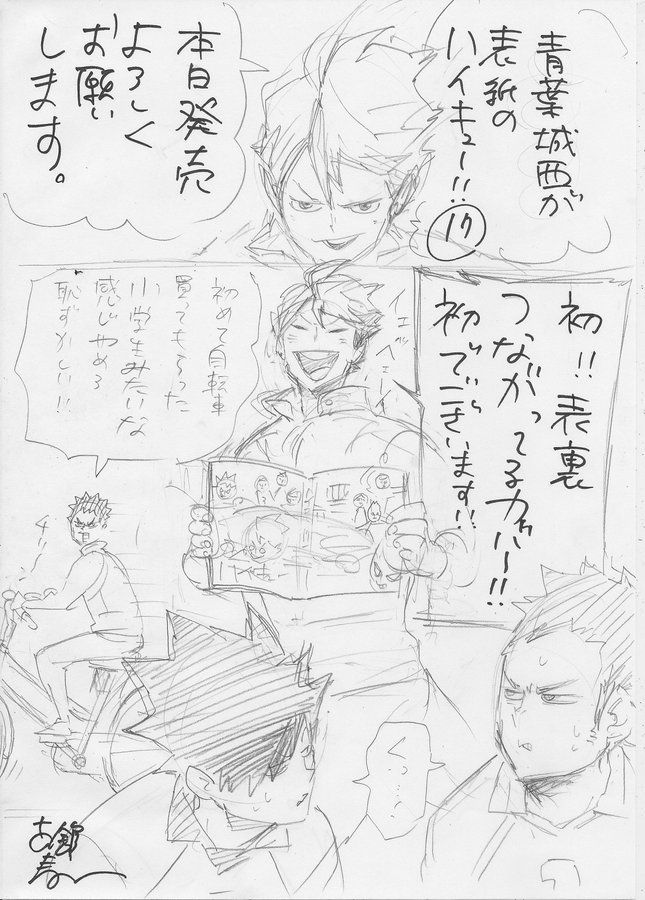 青葉城西が
表紙の
ハイキュー!!
17
本日発売
よろしく
お願い
します。
初!!表裏
つながってるカバー!!
初でございます!!
イェーイ
初めて自転車
買ってもらった
小学生みたいな
感じやめろ
恥ずかしい!!
チリーン
くっ…